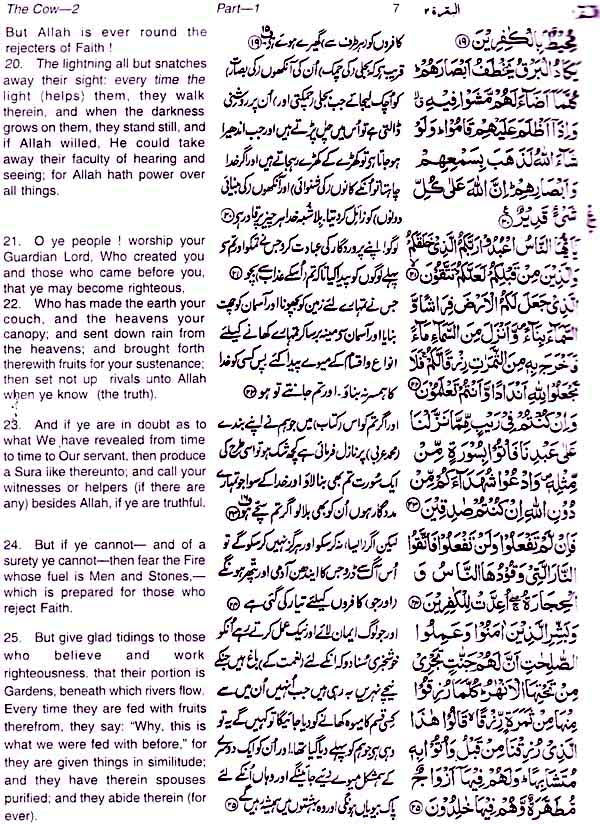 The Cow—2
Part—1
7
البقرة ٢
But Allah is ever round the
rejecters of Faith !
20. The lightning all but snatches
away their sight: every time the
light (helps) them, they walk
therein, and when the darkness
grows on them, they stand still, and
if Allah willed, He could take
away their faculty of hearing and
seeing; for Allah hath power over
all things.
21. O ye people ! worship your
Guardian Lord, Who created you
and those who came before you,
that ye may become righteous,
22. Who has made the earth your
couch, and the heavens your
canopy; and sent down rain from
the heavens; and brought forth
therewith fruits for your sustenance;
then set not up rivals unto Allah
when ye know (the truth).
23. And if ye are in doubt as to
what We have revealed from time
to time to Our servant, then produce
a Sura like thereunto; and call your
witnesses or helpers (if there are
any) besides Allah, if ye are truthful.
24. But if ye cannot— and of a
surety ye cannot—then fear the Fire
whose fuel is Men and Stones,—
which is prepared for those who
reject Faith.
25. But give glad tidings to those
who believe and work
righteousness, that their portion is
Gardens, beneath which rivers flow.
Every time they are fed with fruits
therefrom, they say: “Why, this is
what we were fed with before,” for
they are given things in similitude;
and they have therein spouses
purified; and they abide therein (for
ever).
کافروں کو ہر طرف سے گھیرے ہوئے ہے ⑲
قریب ہے کہ بجلی کی چمک، اُن کی آنکھوں کی بصارت
کو اچک لیجائے جب بجلی چمکتی اور اُن پر روشنی
ڈالتی ہے تو اُس میں چل پڑتے ہیں اور جب اندھیرا
ہو جاتا ہے تو کھڑے کے کھڑے رہ جاتے ہیں اور اگر خدا
چاہتا تو اُنکے کانوں کی شنوائی اور آنکھوں کی بینائی
دونوں کو زائل کر دیتا، بلاشبہ خدا ہر چیز پر قادر ہے ⑳
لوگو! اپنے پروردگار کی عبادت کرو جس نے تمکو اور تم سے
پہلے لوگوں کو پیدا کیا تاکہ تم اُسکے عذاب سے بچو ㉑
جس نے تمہارے لئے زمین کو بچھونا اور آسمان کو چھت
بنایا اور آسمان سے مینہ برسا کر تمہارے کھانے کیلئے
انواع و اقسام کے میوے پیدا کئے، پس کسی کو خدا
کا ہمسر نہ بناؤ۔ اور تم جانتے تو ہو ㉒
اور اگر تم کو اس (کتاب) میں جو ہم نے اپنے بندے
(محمد عربی) پر نازل فرمائی ہے کچھ شک ہو تو اسی طرح کی
ایک سُورت تم بھی بنا لاؤ اور خدا کے سوا جو تمہارے
مددگار ہوں اُن کو بھی بلا لو اگر تم سچے ہو ㉓
لیکن اگر (ایسا) نہ کر سکو اور ہرگز نہیں کر سکو گے تو
اُس آگ سے ڈرو جس کا ایندھن آدمی اور پتھر ہونگے
(اور جو) کافروں کیلئے تیار کی گئی ہے ㉔
اور جو لوگ ایمان لائے اور نیک عمل کرتے رہے اُنکو
خوشخبری سُنا دو کہ اُنکے لئے (نعمت کے) باغ ہیں جنکے
نیچے نہریں بہہ رہی ہیں جب اُنہیں اُن میں سے
کسی قسم کا میوہ کھانے کو دیا جائیگا تو کہیں گے یہ تو
وہی ہے جو ہم کو پہلے دیا گیا تھا۔ اور اُن کو ایک دوسرے
کے ہمشکل میوے دیے جائینگے اور وہاں اُنکے لئے
پاک بیویاں ہونگی اور وہ بہشتوں میں ہمیشہ رہیں گے ㉕
مُحِيطٌ بِالْكَافِرِينَ ⑲
يَكَادُ الْبَرْقُ يَخْطَفُ أَبْصَارَهُمْ
كُلَّمَا أَضَاءَ لَهُمْ مَشَوْا فِيهِ
وَإِذَا أَظْلَمَ عَلَيْهِمْ قَامُوا وَلَوْ
شَاءَ اللَّهُ لَذَهَبَ بِسَمْعِهِمْ
وَأَبْصَارِهِمْ إِنَّ اللَّهَ عَلَى كُلِّ
شَيْءٍ قَدِيرٌ ⑳
يَا أَيُّهَا النَّاسُ اعْبُدُوا رَبَّكُمُ الَّذِي خَلَقَكُمْ
وَالَّذِينَ مِنْ قَبْلِكُمْ لَعَلَّكُمْ تَتَّقُونَ ㉑
الَّذِي جَعَلَ لَكُمُ الْأَرْضَ فِرَاشًا وَ
السَّمَاءَ بِنَاءً وَأَنْزَلَ مِنَ السَّمَاءِ مَاءً
فَأَخْرَجَ بِهِ مِنَ الثَّمَرَاتِ رِزْقًا لَكُمْ فَلَا
تَجْعَلُوا لِلَّهِ أَنْدَادًا وَأَنْتُمْ تَعْلَمُونَ ㉒
وَإِنْ كُنْتُمْ فِي رَيْبٍ مِمَّا نَزَّلْنَا
عَلَى عَبْدِنَا فَأْتُوا بِسُورَةٍ مِنْ
مِثْلِهِ وَادْعُوا شُهَدَاءَكُمْ مِنْ
دُونِ اللَّهِ إِنْ كُنْتُمْ صَادِقِينَ ㉓
فَإِنْ لَمْ تَفْعَلُوا وَلَنْ تَفْعَلُوا فَاتَّقُوا
النَّارَ الَّتِي وَقُودُهَا النَّاسُ وَ
الْحِجَارَةُ أُعِدَّتْ لِلْكَافِرِينَ ㉔
وَبَشِّرِ الَّذِينَ آمَنُوا وَعَمِلُوا
الصَّالِحَاتِ أَنَّ لَهُمْ جَنَّاتٍ تَجْرِي
مِنْ تَحْتِهَا الْأَنْهَارُ كُلَّمَا رُزِقُوا
مِنْهَا مِنْ ثَمَرَةٍ رِزْقًا قَالُوا هَذَا
الَّذِي رُزِقْنَا مِنْ قَبْلُ وَأُتُوا بِهِ
مُتَشَابِهًا وَلَهُمْ فِيهَا أَزْوَاجٌ
مُطَهَّرَةٌ وَهُمْ فِيهَا خَالِدُونَ ㉕